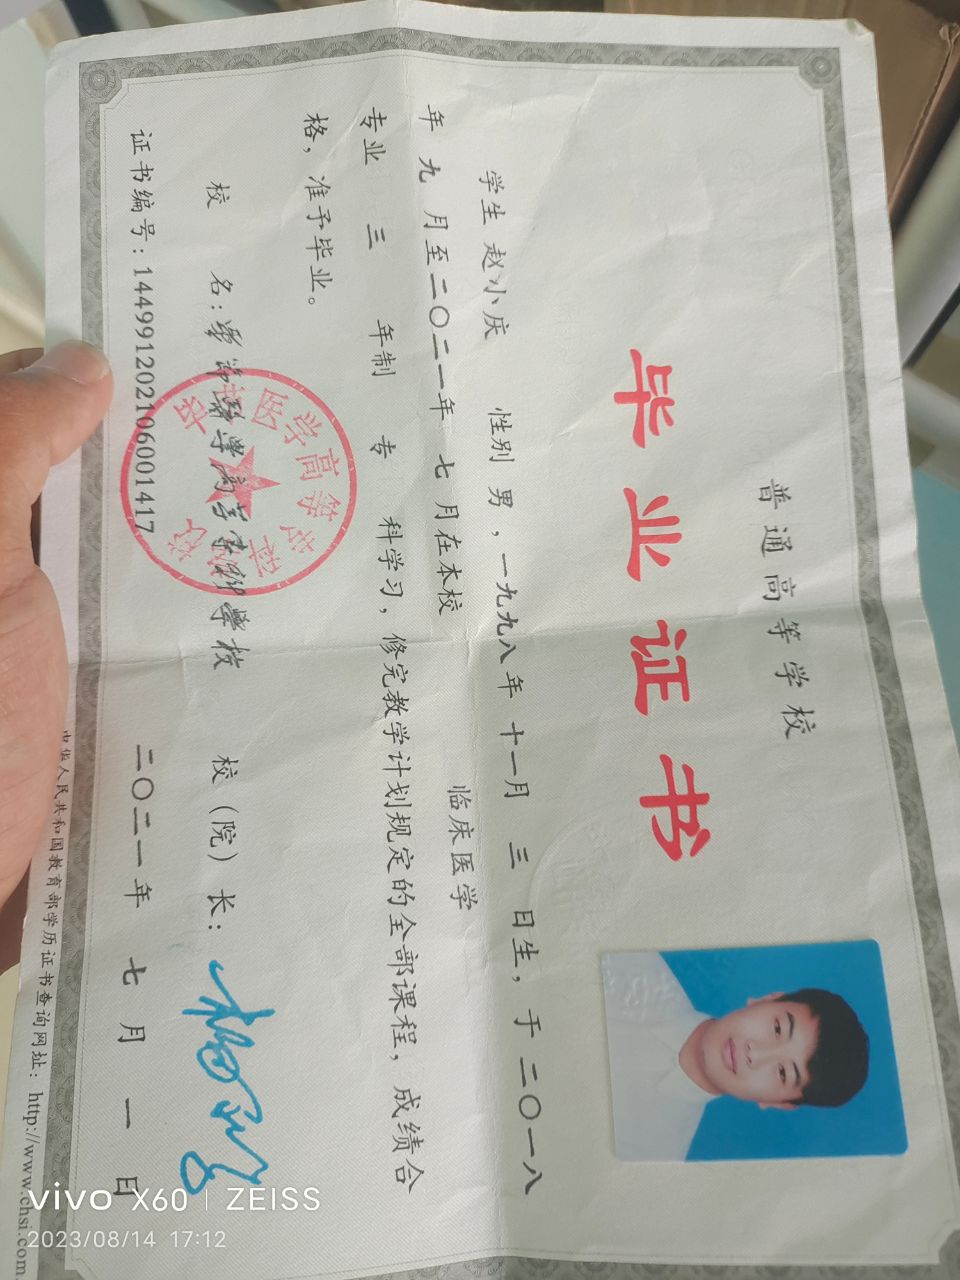 普通高等学校
毕业证书
学生 赵小庆 性别 男，一九九八年 十一月 三 日生，于二〇一八
年 九 月至二〇二一年 七 月在本校 临床医学
专业 三 年制 专 科学习，修完教学计划规定的全部课程，成绩合
格，准予毕业。
校 名： 医学高等专科学校 校（院）长：
证书编号：144991202106001417 二〇二一年 七 月 一 日
中华人民共和国教育部学历证书查询网址：http://www.chsi.com.
医学高等专科学校
vivo X60 | ZEISS
2023/08/14 17:12